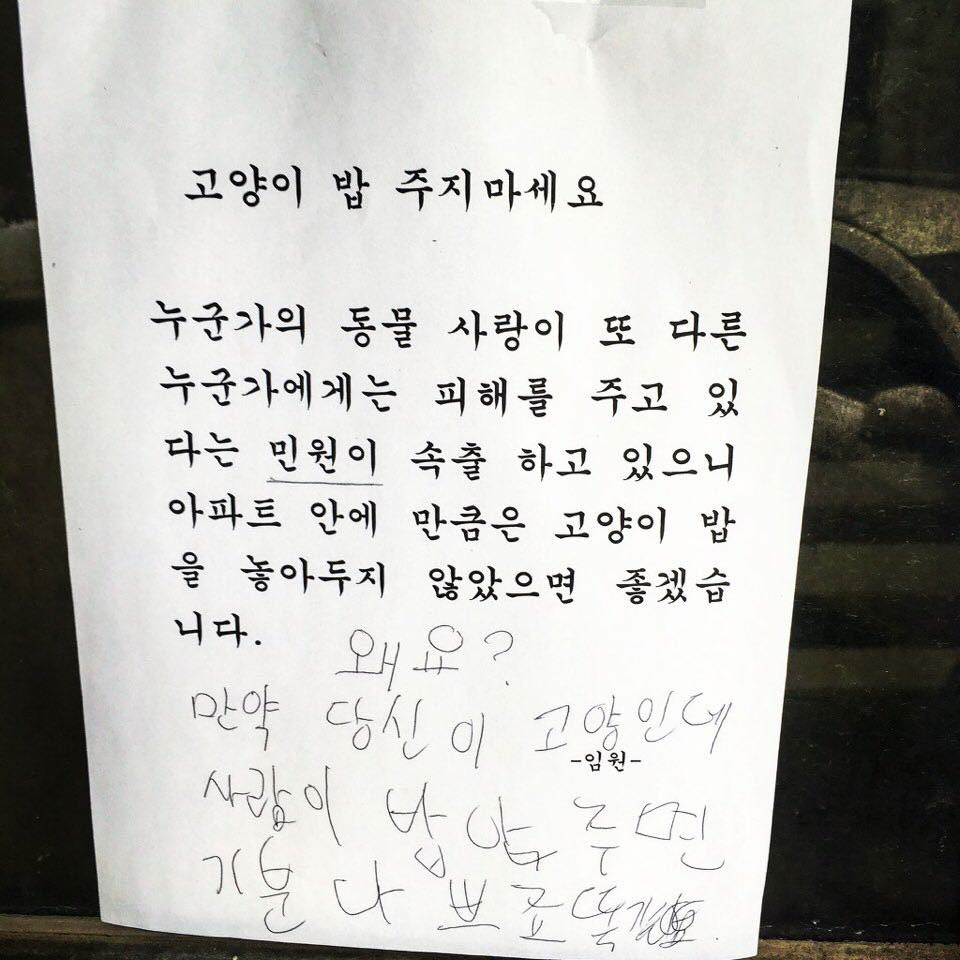 고양이 밥 주지마세요
누군가의 동물 사랑이 또 다른
누군가에게는 피해를 주고 있
다는 민원이 속출 하고 있으니
아파트 안에 만큼은 고양이 밥
을 놓아두지 않았으면 좋겠습
니다.
왜요?
만약 당신이 고양인데
-임원-
사람이 밥 안 주면
기분 나쁘죠